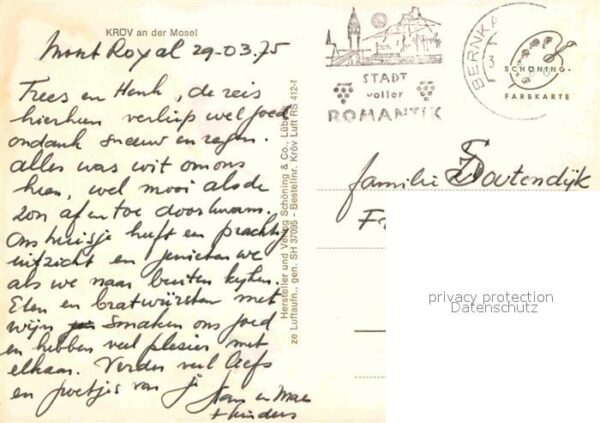 KRÖV an der Mosel
Mont Royal 29-03.75
Trees en Henk, de reis
hierheen verliep wel goed
ondank sneeuw en regen.
alles was wit om ons
heen, wel mooi als de
zon af en toe doorkwam.
Ons huisje heeft een prachtig
uitzicht en genieten we
als we naar buiten kijken.
Eten en bratwürsten met
wijn smaken ons goed
en hebben veel plezier met
elkaar. Verder veel liefs
en groetjes van
+ kinders
Hersteller und Verlag Schöning & Co., Lübeck
ze Luftaufn., gen. SH 37095 - Bestellnr. Kröv Luft RS 412-f
STADT
voller
ROMANTIK
BERNKA
3
SCHÖNING-
FARBKARTE
familie
privacy protection
Datenschutz